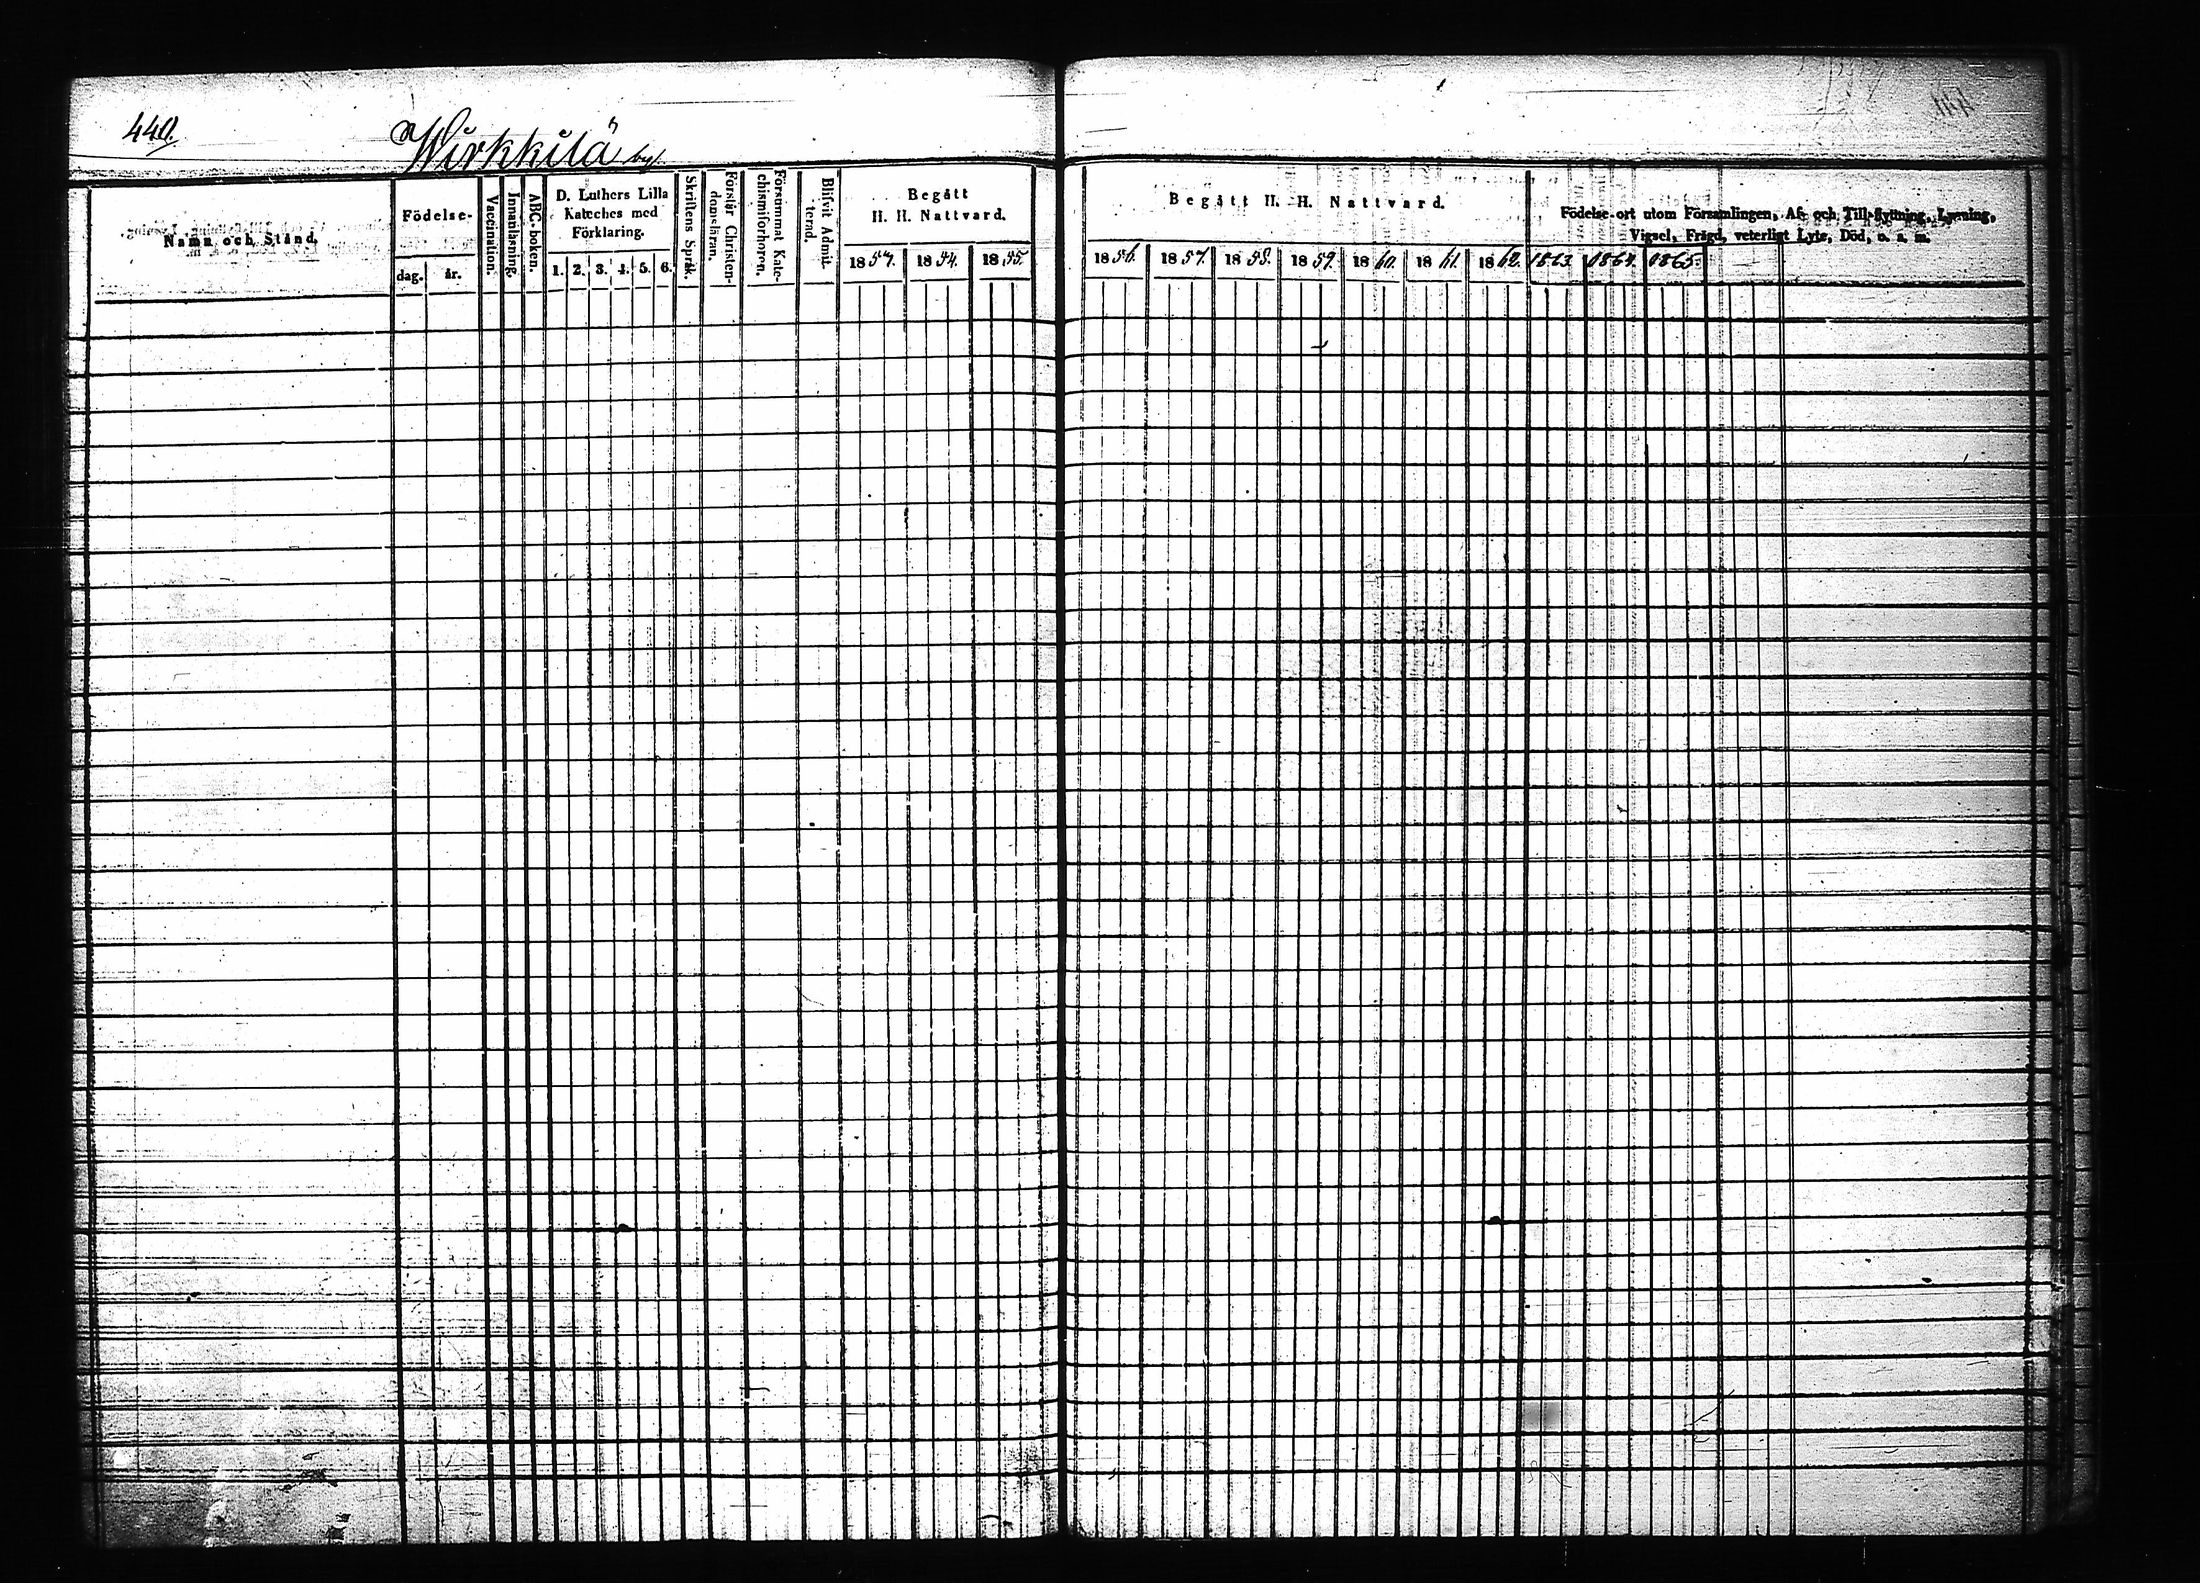 440.
Wirkkilä by.
Namn och Stånd.
Födelse-
dag. år.
Vaccination.
Innanläsning.
ABC-boken.
D. Luthers Lilla
Kateches med
Förklaring.
1. 2. 3. 4. 5. 6.
Skriftens Språk.
Förstår Christen-
domsläran.
Försummat Kate-
chismiförhören.
Blifvit Admit-
terad.
Begått
H. H. Nattvard.
1853. 1854. 1855.
Begått H. H. Nattvard.
1856. 1857. 1858. 1859. 1860. 1861. 1862. 1863. 1864. 1865.
Födelse-ort utom Församlingen, Af- och Till-flyttning, Lysning,
Vigsel, Frägd, veterligt Lyte, Död, o. s. m.